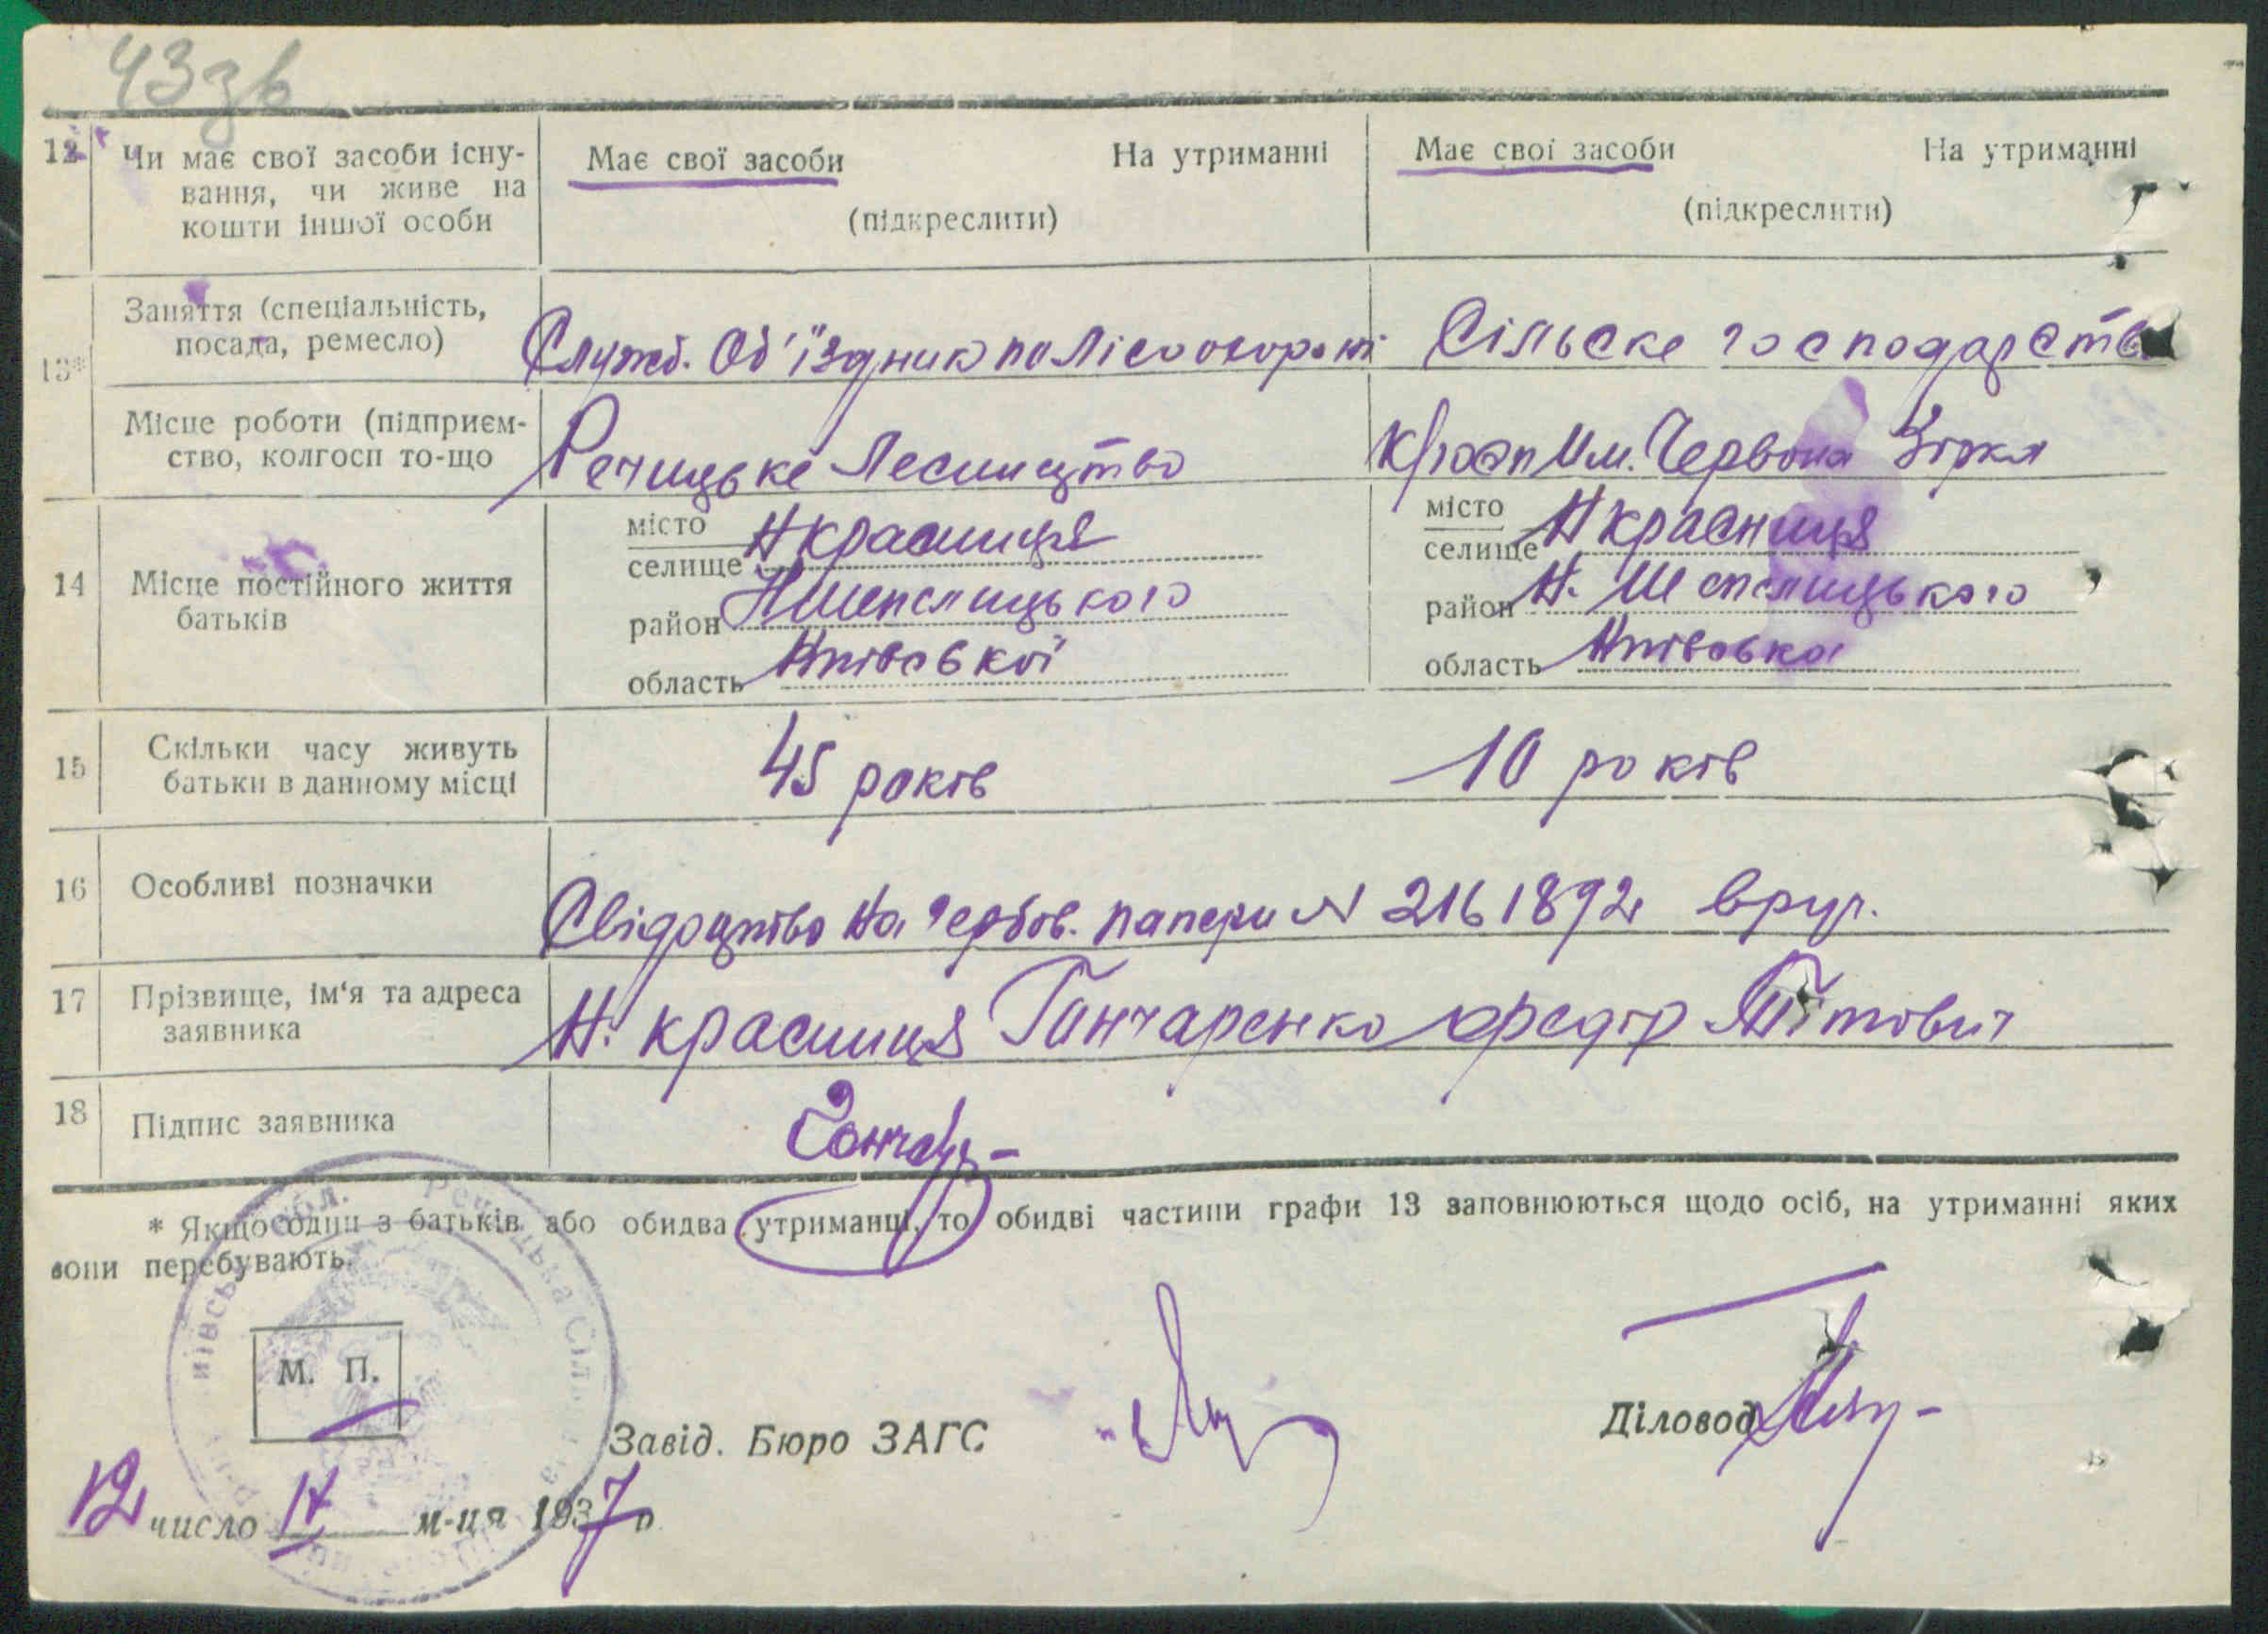 43зв
12 Чи має свої засоби існу- Має свої засоби На утриманні Має свої засоби На утриманні
вання, чи живе на
кошти іншої особи (підкреслити) (підкреслити)
13* Заняття (спеціальність,
посада, ремесло) Служб. Об'їздник по Лісоохороні Сільске господарство
Місце роботи (підприєм-
ство, колгосп то-що Речицьке Лесництво Им. Червона Зірка
14 Місце постійного життя
батьків
місто
селище Н Красниця
район НШепелицького
область
місто
селище Н Красниця
район Н. Шепелицького
область
15 Скільки часу живуть
батьки в данному місці 45 років 10 років
16 Особливі позначки Свідоцтво на гербов. папери N 2161892 вруч.
17 Прізвище, ім‘я та адреса
заявника Н. Красниця Гончаренко Федір Тітович
18 Підпис заявника Гончар
* Якщо один з батьків або обидва утриманці, то обидві частини графи 13 заповнюються щодо осіб, на утриманні яких
вони перебувають.
М. П.
Завід. Бюро ЗАГС Діловод
12 число м-ця 1937 р.